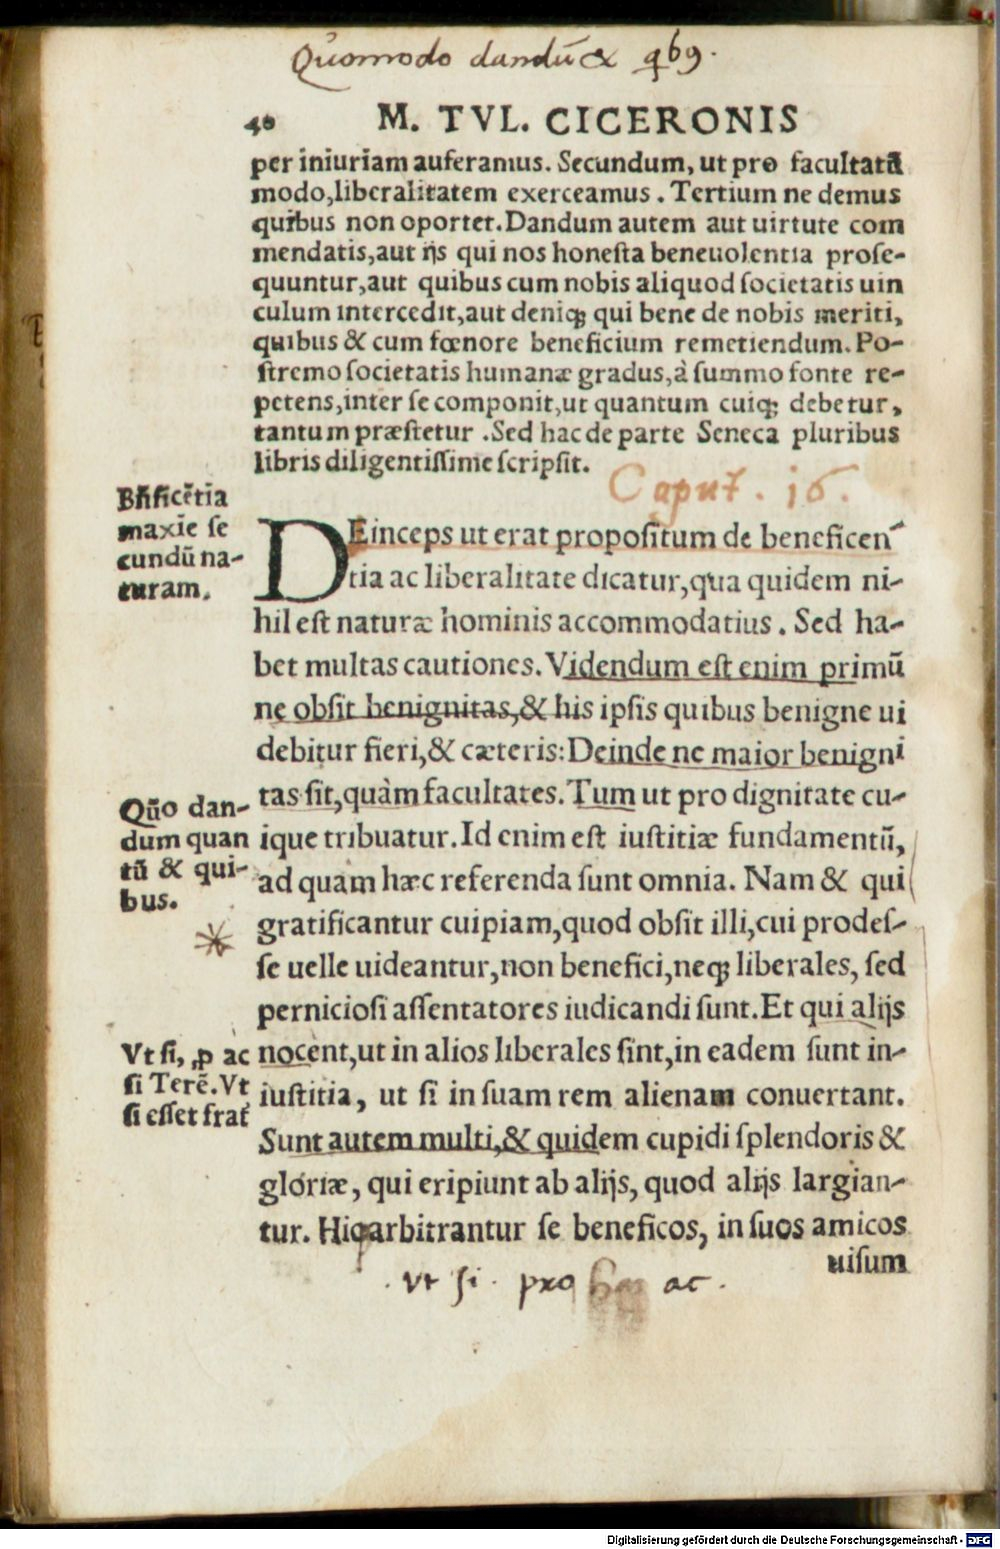 Quomodo dandū &
40 M. TVL. CICERONIS
per iniuriam auferamus. Secundum, ut pro facultatū
modo,liberalitatem exerceamus. Tertium ne demus
quibus non oportet. Dandum autem aut uirtute com
mendatis,aut ijs qui nos honesta beneuolentia prose-
quuntur,aut quibus cum nobis aliquod societatis uin
culum intercedit,aut deniq; qui bene de nobis meriti,
quibus & cum fœnore beneficium remetiendum. Po-
stremo societatis humanæ gradus,à summo fonte re-
petens,inter se componit,ut quantum cuiq; debetur,
tantum præstetur. Sed hac de parte Seneca pluribus
libris diligentissime scripsit.
Caput. 16.
Bn̄ficētia
maxie se
cundū na-
turam.
DEinceps ut erat propositum de beneficen
tia ac liberalitate dicatur,qua quidem ni-
hil est naturæ hominis accommodatius. Sed ha-
bet multas cautiones. Videndum est enim primū
ne obsit benignitas,& his ipsis quibus benigne ui
debitur fieri,& cæteris: Deinde ne maior benigni
tas sit,quàm facultates. Tum ut pro dignitate cu-
ique tribuatur. Id enim est iustitiæ fundamentū,
ad quam hæc referenda sunt omnia. Nam & qui
gratificantur cuipiam,quod obsit illi,cui prodes-
se uelle uideantur,non benefici,neq; liberales, sed
perniciosi assentatores iudicandi sunt. Et qui alijs
nocent,ut in alios liberales sint,in eadem sunt in-
iustitia, ut si in suam rem alienam conuertant.
Sunt autem multi,& quidem cupidi splendoris &
gloriæ, qui eripiunt ab alijs, quod alijs largian-
tur. Hiq arbitrantur se beneficos, in suos amicos
uisum
Qūo dan-
dum quan
tū & qui-
bus.
Vt si, ꝓ ac
si Terē. Vt
si esset frat̄
. vt si. pro ac .
Digitalisierung gefördert durch die Deutsche Forschungsgemeinschaft - DFG